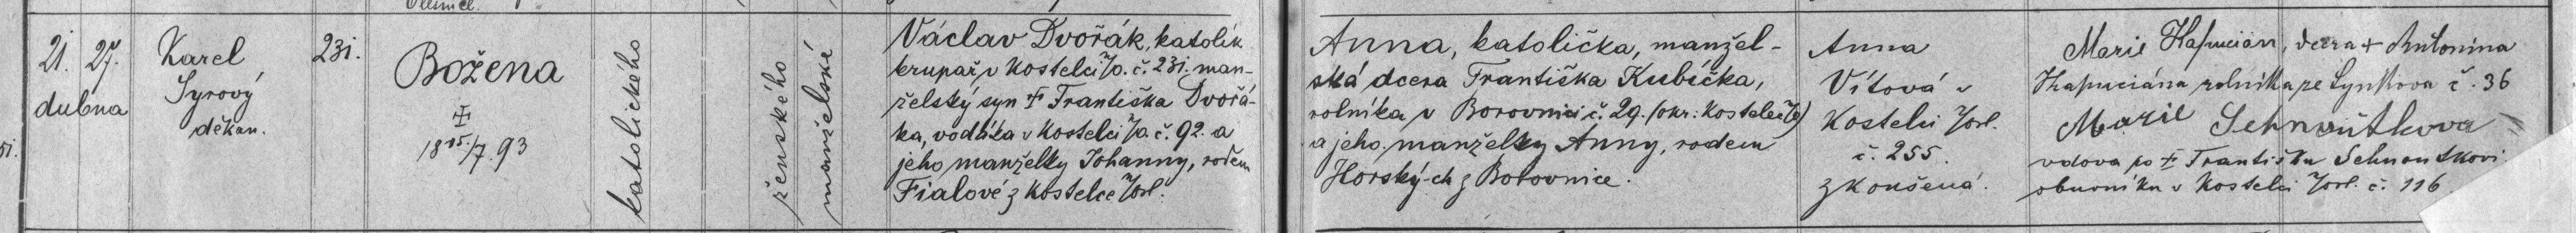 21. 27.
dubna
Karel
Syrový
děkan.
231.
Božena
‡
18 15./7. 93
katolického
ženského
manželské
Václav Dvořák, katolík
krupař v Kostelci n/O. č. 231. man-
želský syn ‡ Františka Dvořá-
ka, vodáka v Kostelci n/O. č. 92. a
jeho manželky Johanny, rodem
Fialové z Kostelce n/Orl.
Anna, katolička, manžel-
ská dcera Františka Kubíčka,
rolníka v Borovnici č. 29. (okr: Kostelec n/O)
a jeho manželky Anny, rodem
Horský-ch z Borovnice.
Anna
Vítová v
Kostelci n/Orl.
č. 255.
zkoušená.
Marie Kapucián, dcera + Antonína
Kapuciána rolníka ze Synkova č. 36
Marie Sehnoutkova
vdova po ‡ Františku Sehnoutkovi
obuvníku v Kostelci n/Orl. č. 116